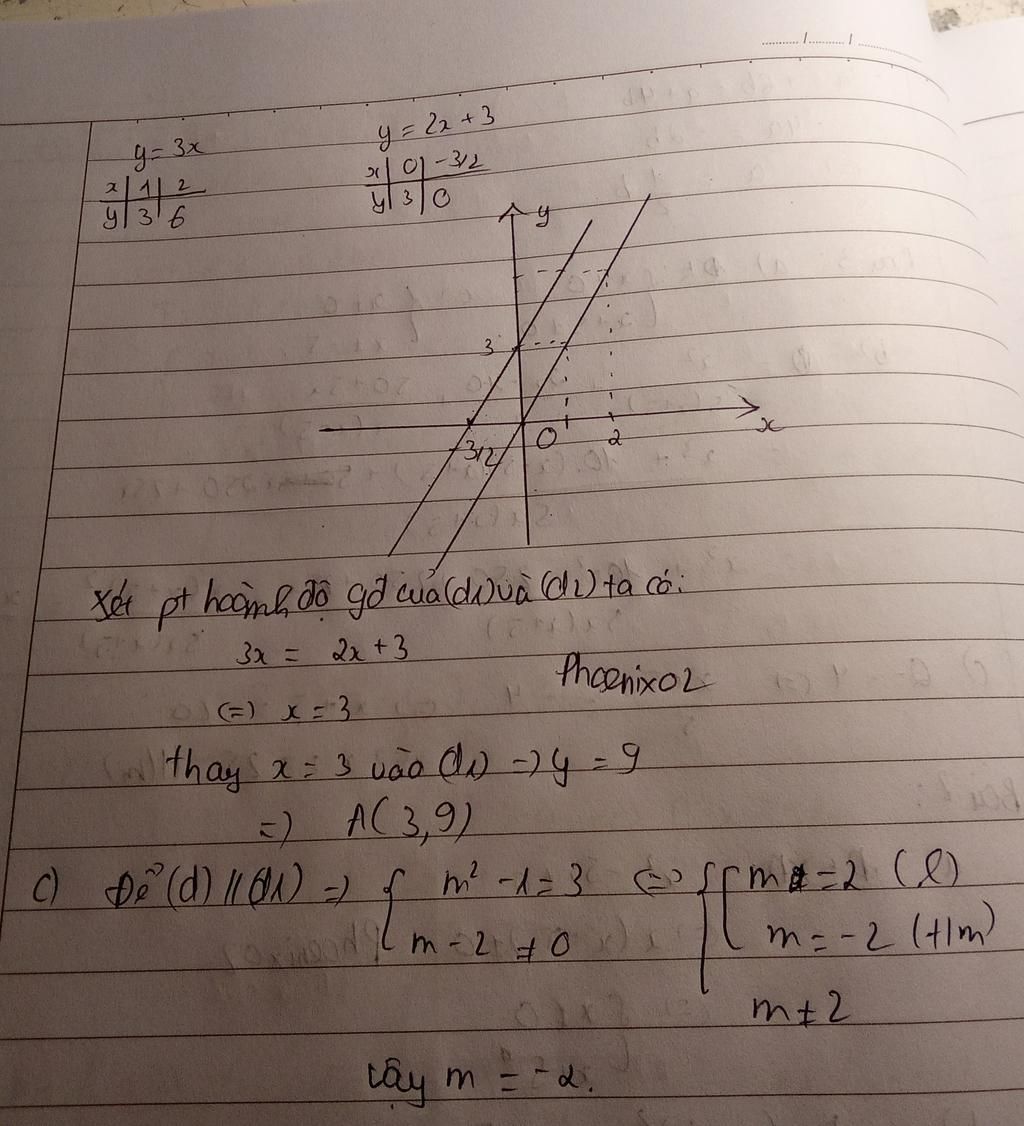 y = 3x
y = 2x + 3
x | 1 | 2
y | 3 | 6
x | 0 | -3/2
y | 3 | 0
y
3
-3/2
O
2
x
Xét pt hoành độ gđ của (d1) và (d2) ta có:
3x = 2x + 3
Phoenix02
(=) x = 3
thay x = 3 vào (d1) => y = 9
=) A(3,9)
c) Để (d) // (d1) => { m² - 1 = 3 <=> { [ m = 2 (l)
m - 2 ≠ 0 m = -2 (t/m)
m ≠ 2
Vậy m = -2.